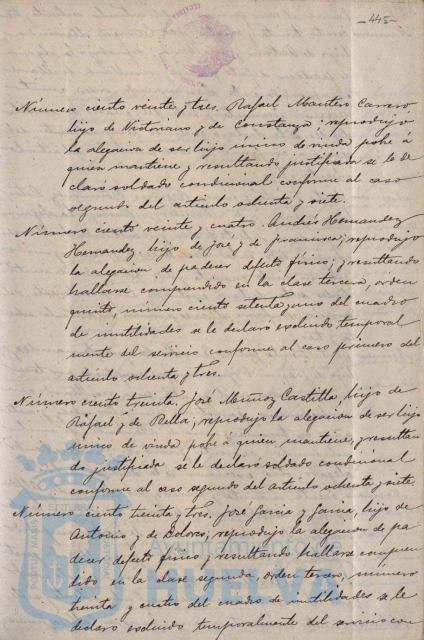 -445-
Número ciento veinte y tres. Rafael Montero Carrero
hijo de Victoriano y de Constanza; reprodujo
la alegacion de ser hijo único de viuda pobre á
quien mantiene y resultando justificada se le de
claró soldado condicional conforme al caso
segundo del artículo ochenta y siete.
Número ciento veinte y cuatro. Andrés Hernandez
Hernandez hijo de José y de Francisca; reprodujo
la alegacion de padecer defecto físico; y resultando
hallarse comprendido en la clase tercera, orden
quinto, número ciento setenta y uno del cuadro
de inutilidades se le declaró escluido temporal
mente del servicio conforme al caso primero del
artículo ochenta y tres.
Número ciento treinta. José Muñoz Castilla, hijo de
Rafael y de Bella; reprodujo la alegacion de ser hijo
único de viuda pobre á quien mantiene, y resultan
do justificada se le declaró soldado condicional
conforme al caso segundo del artículo ochenta y siete
Número ciento treinta y tres. José Garcia y Garcia, hijo de
Antonio y de Dolores; reprodujo la alegacion de pa
decer defecto físico y resultando hallarse compren
dido en la clase segunda, orden tercero, número
treinta y cuatro del cuadro de inutilidades se le
declaró escluido temporalmente del servicio con
PORTUS MARIS
HUELVA